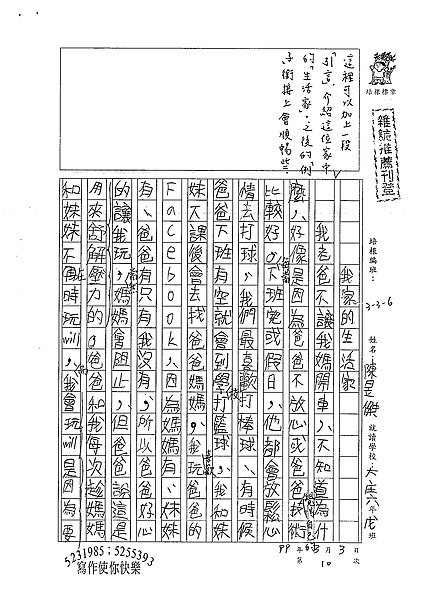 這裡可以加上一段
「引言」,介紹這位家中
的「生活家」,之後的例
子銜接上會順暢些。
培根標章
雜誌推薦刊登
培根編班:3-3-6
姓名:陳
就讀學校
年
班
我家的生活家
我老爸不讓我媽開車,不知道為什
麼,好像是因為爸爸不放心或爸爸技術
比較好。下班完或假日,他都會放鬆心
情去打球,我們最喜歡打棒球,有時候
爸爸下班有空就會到學校打籃球,我和妹
妹下課後會去找爸爸媽媽,我玩爸爸的
Facebook,因為媽媽有、妹妹
有、爸爸有只有我沒有,所以爸爸好心
的讓我玩,媽媽會阻止,但爸爸說這是
用來舒解壓力的。爸爸和我每次趁媽媽
和妹妹不在時偶玩will,我會玩will是因為要
99年3月3日
第 10 次
5231985;5255393
寫作使你快樂